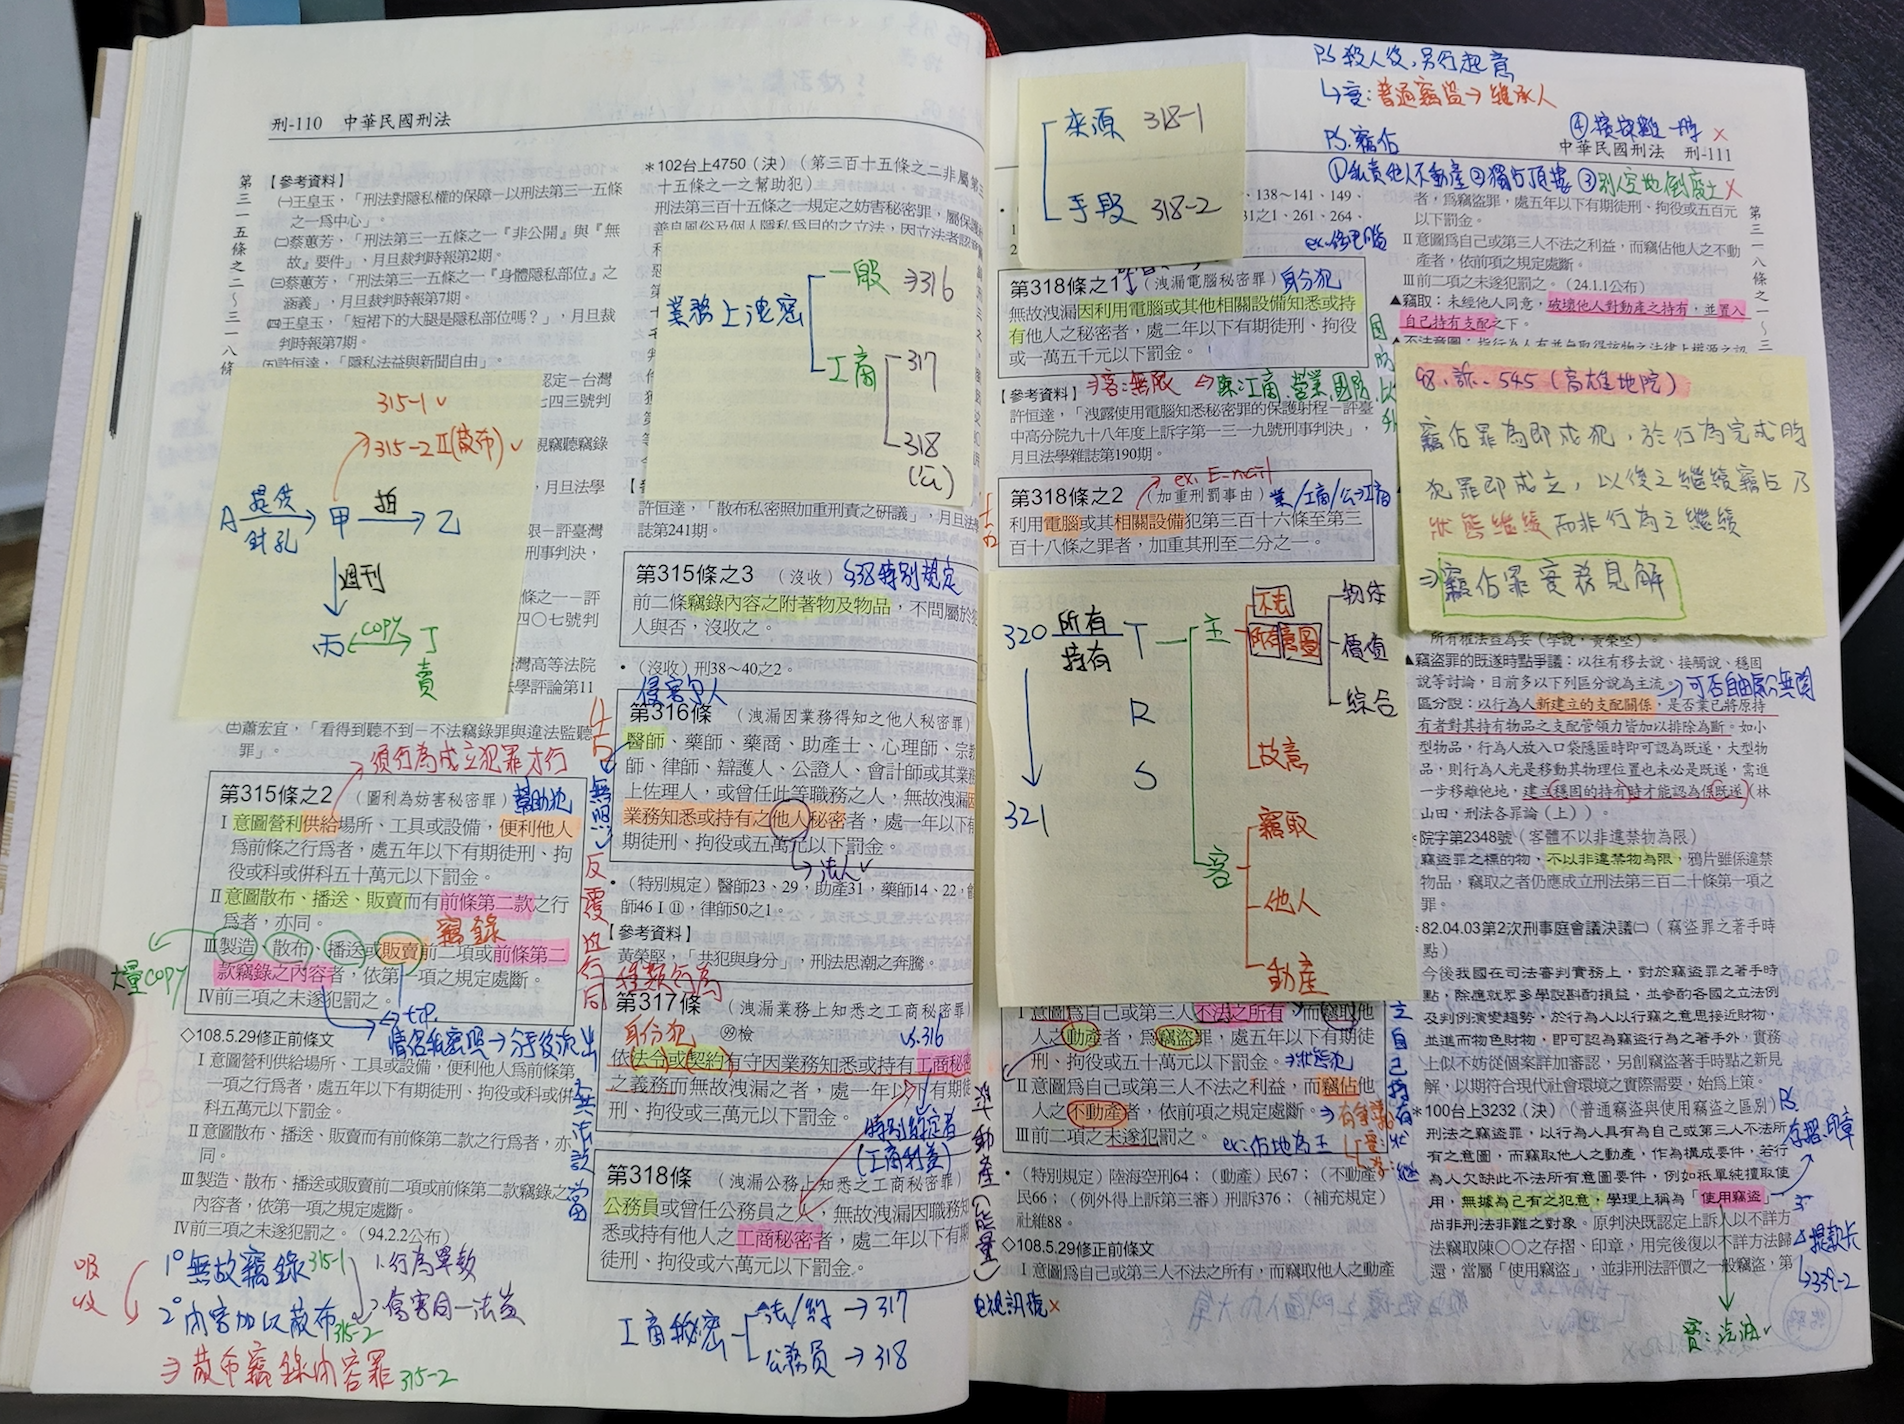 刑-110 中華民國刑法
第三一五條之二～三一八條
【參考資料】
㈠王皇玉,「刑法對隱私權的保障－以刑法第三一五條
之一為中心」。
㈡蔡蕙芳,「刑法第三一五條之一『非公開』與『無
故』要件」,月旦裁判時報第2期。
㈢蔡蕙芳,「刑法第三一五條之一『身體隱私部位』之
涵義」,月旦裁判時報第7期。
㈣王皇玉,「短裙下的大腿是隱私部位嗎?」,月旦裁
判時報第7期。
㈤許恒達,「隱私法益與新聞自由」。
認定－台灣
七四三號判
視竊聽竊錄
,月旦法學
限－評臺灣
刑事判決,
條之一－評
四〇七號判
灣高等法院
法學評論第11
315-1 ✓
315-2 II(散布) ✓
A 提供 針孔 → 甲 拍 → 乙
週刊
丙 COPY 丁
賣
㈥蕭宏宜,「看得到聽不到－不法竊錄罪與違法監聽
罪」。
須行為成立犯罪才行
第315條之2 (圖利為妨害秘密罪) 幫助犯
Ⅰ意圖營利供給場所、工具或設備,便利他人
為前條之行為者,處五年以下有期徒刑、拘
役或科或併科五十萬元以下罰金。
Ⅱ意圖散布、播送、販賣而有前條第二款之行
為者,亦同。
竊錄
Ⅲ製造、散布、播送或販賣前二項或前條第二
款竊錄之內容者,依第一項之規定處斷。
Ⅳ前三項之未遂犯罰之。
大量COPY
情侶私密照→分手後流出
◇108.5.29修正前條文
Ⅰ意圖營利供給場所、工具或設備,便利他人為前條第
一項之行為者,處五年以下有期徒刑、拘役或科或併
科五萬元以下罰金。
Ⅱ意圖散布、播送、販賣而有前條第二款之行為者,亦
同。
Ⅲ製造、散布、播送或販賣前二項或前條第二款竊錄之
內容者,依第一項之規定處斷。
Ⅳ前三項之未遂犯罰之。(94.2.2公布)
吸收
1° 無故竊錄 315-1
2° 內容加以散布 315-2
⇒ 散布竊錄內容罪 315-2
1.行為單數
2.傷害同一法益
*102台上4750(決)(第三百十五條之二非屬第三
十五條之一之幫助犯)
刑法第三百十五條之一規定之妨害秘密罪,屬保護
善良風俗及個人隱私為目的之立法,因立法者認
業務上洩密
一般 ⇒316
工商
317
318
(公)
許恒達,「散布私密照加重刑責之研議」,月旦法
誌第241期。
第315條之3 (沒收) §38特別規定
前二條竊錄內容之附著物及物品,不問屬於犯
人與否,沒收之。
•(沒收)刑38～40之2。
侵害個人
第316條 (洩漏因業務得知之他人秘密罪)
醫師、藥師、藥商、助產士、心理師、宗教
師、律師、辯護人、公證人、會計師或其業務
上佐理人,或曾任此等職務之人,無故洩漏因
業務知悉或持有之他人秘密者,處一年以下有
期徒刑、拘役或五萬元以下罰金。
法人✓
•(特別規定)醫師23、29,助產31,藥師14、22,會
師46Ⅰ⑪,律師50之1。
【參考資料】
黃榮堅,「共犯與身分」,刑法思潮之奔騰。
無照
反覆並行同
種類行為
第317條 (洩漏業務上知悉之工商秘密罪)
身分犯
vs.316
依法令或契約有守因業務知悉或持有工商秘密
之義務而無故洩漏之者,處一年以下有期徒
刑、拘役或三萬元以下罰金。
(工商利益)
第318條 (洩漏公務上知悉之工商秘密罪)
公務員或曾任公務員之人,無故洩漏因職務知
悉或持有他人之工商秘密者,處二年以下有期
徒刑、拘役或六萬元以下罰金。
工商秘密
法/約→317
公務員→318
來源 318-1
手段 318-2
PS.殺人後,另行起意
↳竊:普通竊盜→繼承人
PS.竊佔
④ ✗
中華民國刑法 刑-111
①私賣他人不動產②獨占頂樓③別人空地倒廢土✗
第三一八條之一～三
、138～141、149、
31之1、261、264、
第318條之1 (洩漏電腦秘密罪) 身分犯
無故洩漏因利用電腦或其他相關設備知悉或持
有他人之秘密者,處二年以下有期徒刑、拘役
或一萬五千元以下罰金。
⇒客:無限
【參考資料】
許恒達,「洩露使用電腦知悉秘密罪的保護射程－評臺
中高分院九十八年度上訴字第一三一九號刑事判決」,
月旦法學雜誌第190期。
第318條之2 (加重刑罰事由) 業/工商/公工商
利用電腦或其相關設備犯第三百十六條至第三
百十八條之罪者,加重其刑至二分之一。
320 所有 持有
321
T
R
S
主
不法
所有意圖
物体
價值
綜合
故意
客
竊取
他人
動產
Ⅰ意圖為自己或第三人不法之所有,而竊取他
人之動產者,為竊盜罪,處五年以下有期徒
刑、拘役或五十萬元以下罰金。⇒狀態犯
Ⅱ意圖為自己或第三人不法之利益,而竊佔他
人之不動產者,依前項之規定處斷。
Ⅲ前二項之未遂犯罰之。 ex:佔地為王
準動產(能量)
電視訊號✗
•(特別規定)陸海空刑64;(動產)民67;(不動產)
民66;(例外得上訴第三審)刑訴376;(補充規定)
社維88。
◇108.5.29修正前條文
Ⅰ意圖為自己或第三人不法之所有,而竊取他人之動產
者,為竊盜罪,處五年以下有期徒刑、拘役或五百元
以下罰金。
Ⅱ意圖為自己或第三人不法之利益,而竊佔他人之不動
產者,依前項之規定處斷。
Ⅲ前二項之未遂犯罰之。(24.1.1公布)
▲竊取:未經他人同意,破壞他人對動產之持有,並置入
自己持有支配之下。
▲不法意圖:指行為人有並無取得該物之法律上權源之認
98.訴.545(高雄地院)
竊佔罪為即成犯,於行為完成時
犯罪即成立,以後之繼續竊占乃
狀態繼續而非行為之繼續
⇒竊佔罪實務見解
所有權法益為要(學說,黃榮堅)。
▲竊盜罪的既遂時點爭議:以往有移去說、接觸說、穩固
說等討論,目前多以下列區分說為主流。
區分說:以行為人新建立的支配關係,是否業已將原持
有者對其持有物品之支配管領力皆加以排除為斷。如小
型物品,行為人放入口袋隱匿時即可認為既遂,大型物
品,則行為人光是移動其物理位置也未必是既遂,需進
一步移離他地,建立穩固的持有時才能認為係既遂(林
山田,刑法各罪論(上))。
*院字第2348號(客體不以非違禁物為限)
竊盜罪之標的物,不以非違禁物為限,鴉片雖係違禁
物品,竊取之者仍應成立刑法第三百二十條第一項之
罪。
*82.04.03第2次刑事庭會議決議㈡(竊盜罪之著手時
點)
今後我國在司法審判實務上,對於竊盜罪之著手時
點,除應就眾多學說斟酌損益,並參酌各國之立法例
及判例演變趨勢,於行為人以行竊之意思接近財物,
並進而物色財物,即可認為竊盜行為之著手外,實務
上似不妨從個案詳加審認,另創竊盜著手時點之新見
解,以期符合現代社會環境之實際需要,始為上策。
*100台上3232(決)(普通竊盜與使用竊盜之區別)
刑法之竊盜罪,以行為人具有為自己或第三人不法所
有之意圖,而竊取他人之動產,作為構成要件,若行
為人欠缺此不法所有意圖要件,例如祇單純擅取使
用,無據為己有之犯意,學理上稱為「使用竊盜」,
尚非刑法非難之對象。原判決既認定上訴人以不詳方
法竊取陳〇〇之存摺、印章,用完後復以不詳方法歸
還,當屬「使用竊盜」,並非刑法評價之一般竊盜,第
PS.
存摺.印章
提款卡
↳339-2
竊:汽油✓